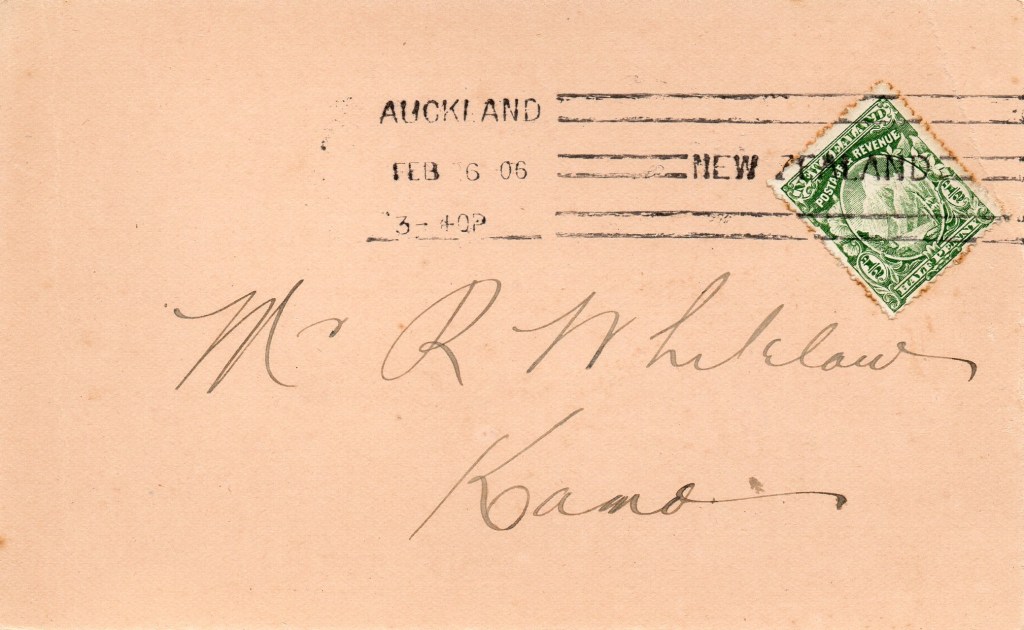 AUCKLAND
FEB 6 06
3-40P
NEW ZEALAND
NEW ZEALAND
POSTAGE & REVENUE
HALF PENNY
Mr R Whitelaw
Kamo